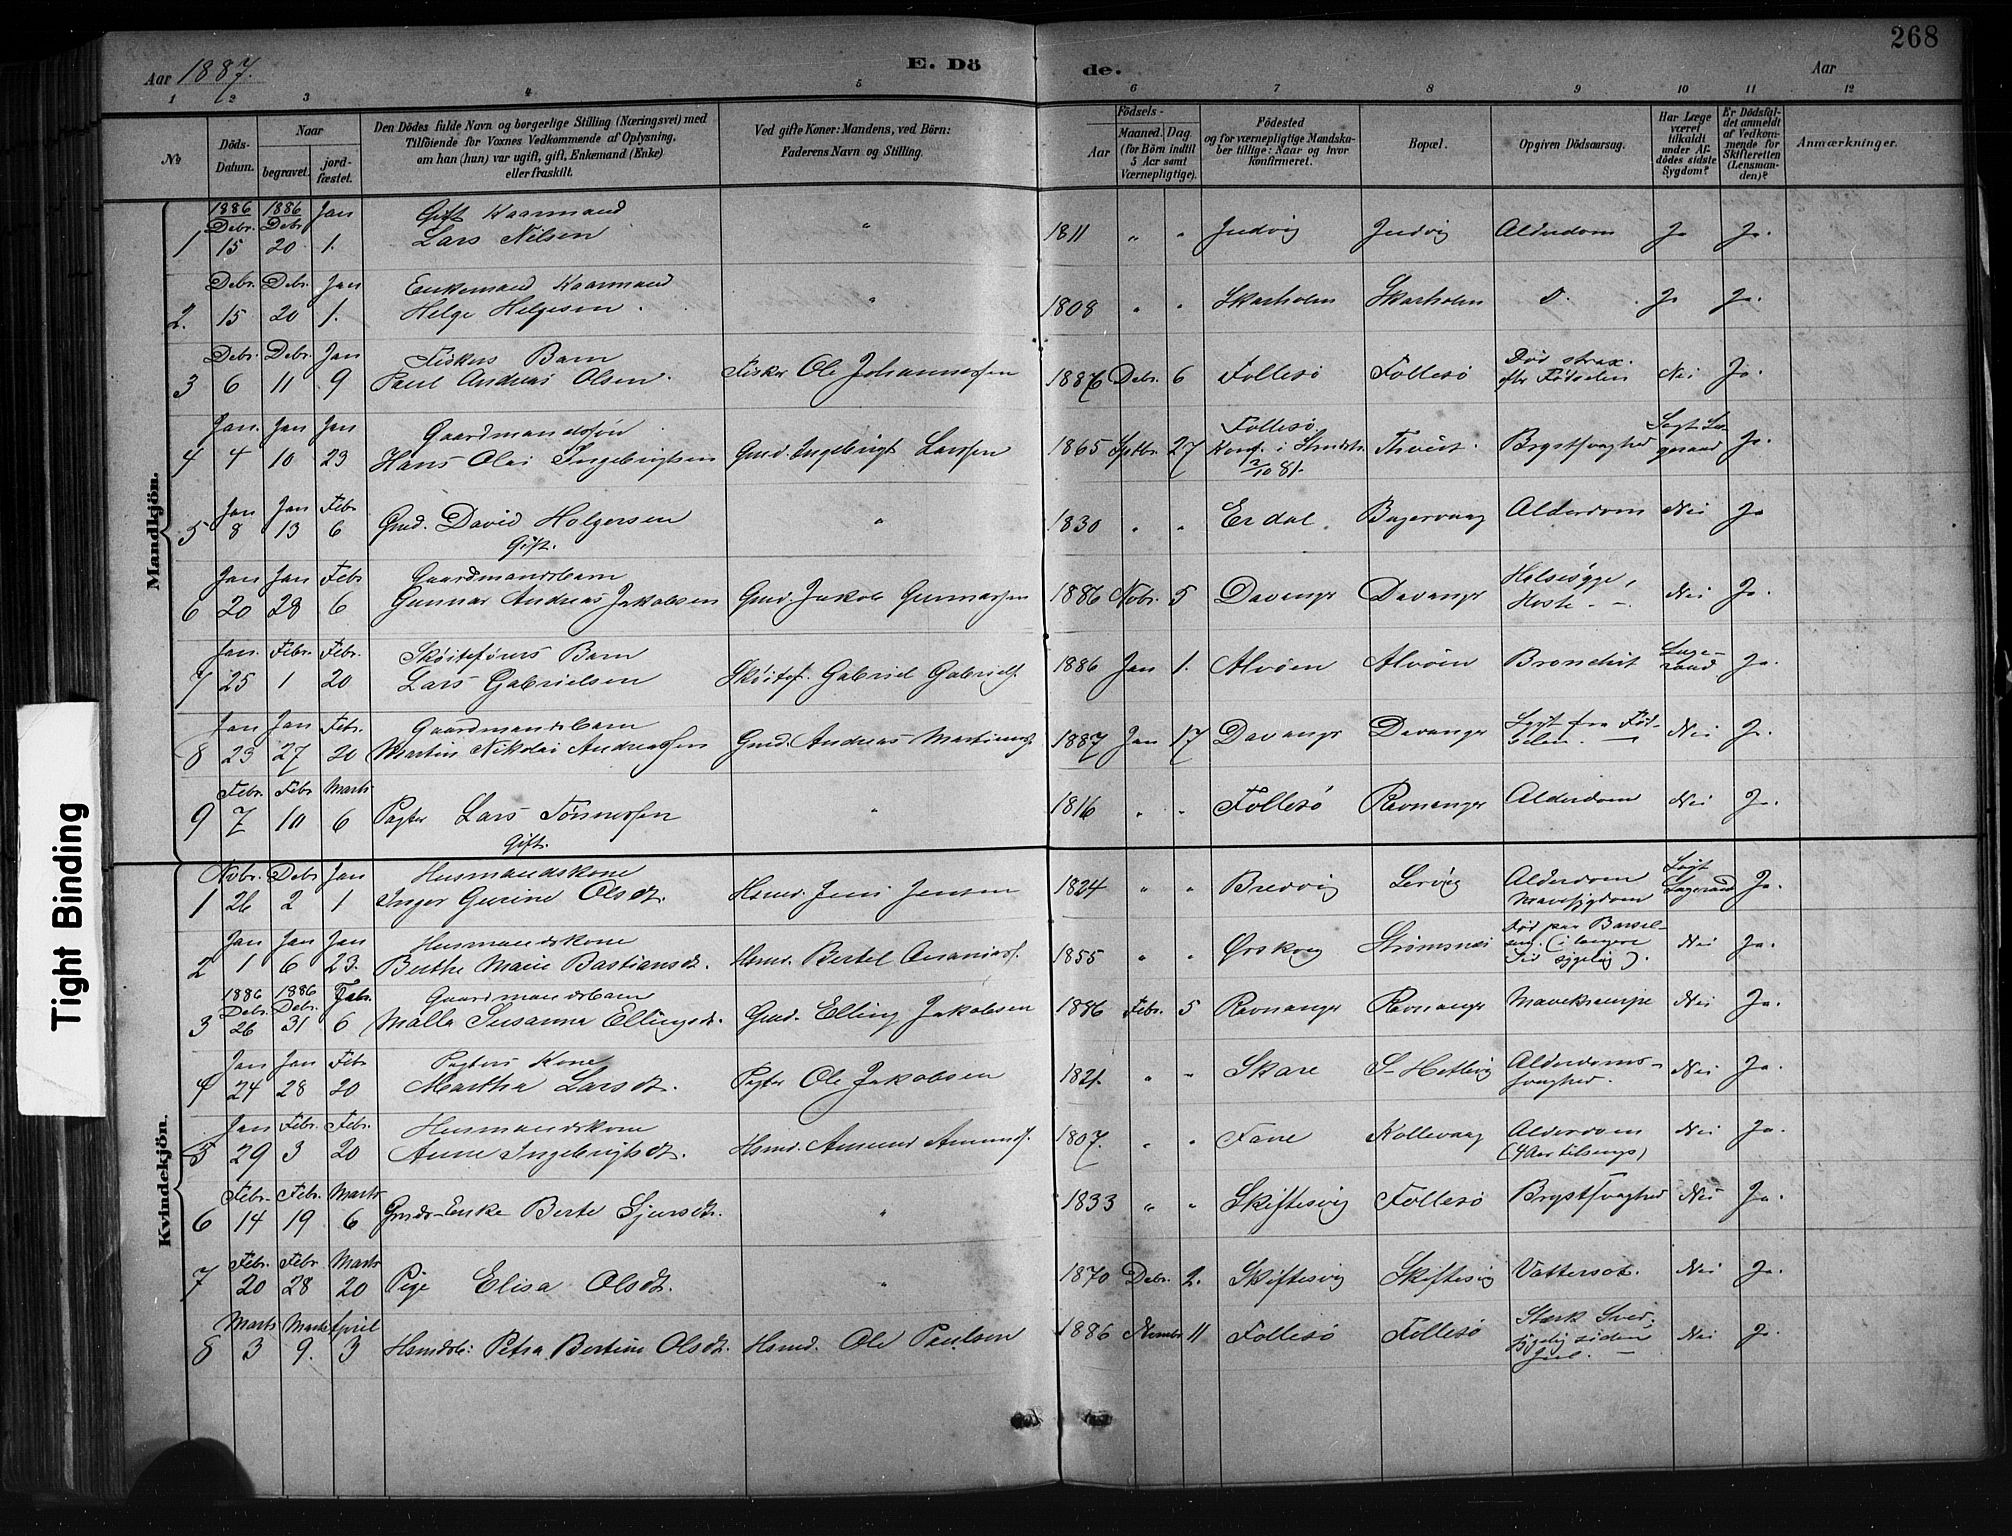 268
Aar 1887. E. Dö de. Aar
1 2 3 4 5 6 7 8 9 10 11 12
No
Döds-Datum.
Naar
begravet.
jordfæstet.
Den Dödes fulde Navn og borgerlige Stilling (Næringsvei) med
Tilföiende for Voxnes Vedkommende af Oplysning,
om han (hun) var ugift, gift, Enkemand (Enke)
eller fraskilt.
Ved gifte Koner: Mandens, ved Börn:
Faderens Navn og Stilling.
Födsels-
Aar
Maaned. Dag
(for Börn indtil
5 Aar samt
Værnepligtige).
Födested
og for værnepligtige Mandskaber tillige: Naar og hvor
konfirmeret.
Bopæl.
Opgiven Dödsaarsag.
Har Læge
været
tilkaldt
under Afdödes sidste
Sygdom?
Er Dödsfaldet anmeldt
af Vedkommende for
Skifteretten
(Lensmanden)?
Anmærkninger.
Mandkjön.
1886 1886 Jan Gift Kaarmand
Debr. Debr.
1 15 20 1. Lars Nilsen " 1811 " " Indvig Indvig Alderdom Ja Ja.
Debr. Debr. Jan Enkemand Kaarmand
2. 15 20 1. Helge Helgesen " 1808 " " Skarholm Skarholm D. Ja Ja.
Debr. Debr. Jan Fiskers Barn
3 6 11 9 Paul Andreas Olsen. Fisker Ole Johannessen 1886 Debr. 6 Follesø Follesø Død strax efter Fødselen Nei Ja.
Jan. Jan Jan Gaardmandssøn
4 4 10 23 Hans Olai Ingebrigtsen Gmd. Ingebrigt Larssen 1865 Septbr. 27 Follesø Konf. i 2/10 81. Brystsvaghed Ja.
Jan Jan Febr
5 8 13 6 Gmd. David Holgersen " 1830 " " Erdal Alderdom Nei Ja
Gift.
Jan Jan Febr Gaardmandsbarn
6 20 28 6 Gunnar Andreas Jakobsen Gmd. Jakob Gunnarsen 1886 Nobr. 5 Davanger Davanger Halssyge, Hoste. Nei Ja.
Jan. Febr. Febr. Skøiteførers Barn
7 25 1 20 Lars Gabrielsen Skøitef. Gabriel Gabriels. 1886 Jan 1. Alvøen Alvøen Bronchit Ja.
Jan Jan Febr. Gaardmandsbarn
8 23 27 20 Martin Nikolai Andreassen Gmd. Andreas Martinuss. 1887 Jan 17 Davanger Davanger Sygt fra Fødselen. Nei Ja.
Febr. Febr Marts
9 7 10 6 Pagter Lars Tønnessen " 1816 " " Follesø Ravnanger Alderdom Nei Ja.
Gift.
Kvindekjön.
Nobr. Debr Jan Husmandskone
1 26 2 1 Inger Gurine Olsdt. Hsmd. Jens Jensen 1824 " " Bredvig Lervig Alderdom Mavesygdom Søgt Lægeraad Ja.
Jan Jan Jan Husmandskone
2 1 6 23. Berthe Marie Bastiansdt. Hsmd. Bertel Ananiass. 1855 " " Ørskog Strømsnes Død paa Barselseng. (i længere Tid sygelig). Nei Ja.
1886 1886 Febr. Gaardmandsbarn
Debr. Debr.
3 26 31 6 Malla Susanna Ellingsdt. Gmd. Elling Jakobsen 1886 Febr. 5 Ravnanger Ravnanger Mavekrampe Nei Ja.
Jan Jan Febr Pagters Kone
4 24 28 20 Martha Larsdt. Pagter Ole Jakobsen 1821 " " Skare S. Hetlevig Alderdomssvaghed. Nei Ja.
Jan Febr. Febr. Husmandskone
5 29 3 20 Anne Ingebrigtsdt. Hsmd. Amund Amunds. 1807. " " Fane Kollevaag Alderdom Nei Ja.
Febr. Febr. Marts
6 14 19 6 Gmds-Enke Berte Sjursdt. " 1833 " " Skiftesvig Follesø Brystsvaghed Nei Ja.
Febr. Febr. Marts
7 20 28 20 Pige Elisa Olsdt. " 1870 Debr. 2. Skiftesvig Skiftesvig Vattersot. Nei Ja.
Marts Marts April
8 3 9. 3 Hsmdsb: Petra Bertine Olsdt. Hsmd. Ole Paulsen 1886 11 Follesø Follesø Stærk Sved, sygelig siden Jul. Nei Ja.
Tight Binding